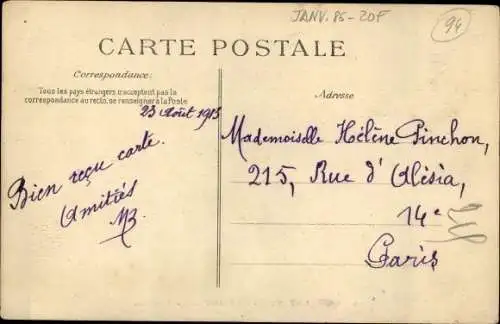 JANV. 85 - 20F
94
CARTE POSTALE
Correspondance:
Tous les pays étrangers n'acceptent pas la
correspondance au recto, se renseigner à la Poste
Adresse
23 Août 1913
Bien reçu carte.
Amitiés
MB.
Mademoiselle Hélène Pinchon,
215, Rue d'Alésia,
14e
Paris